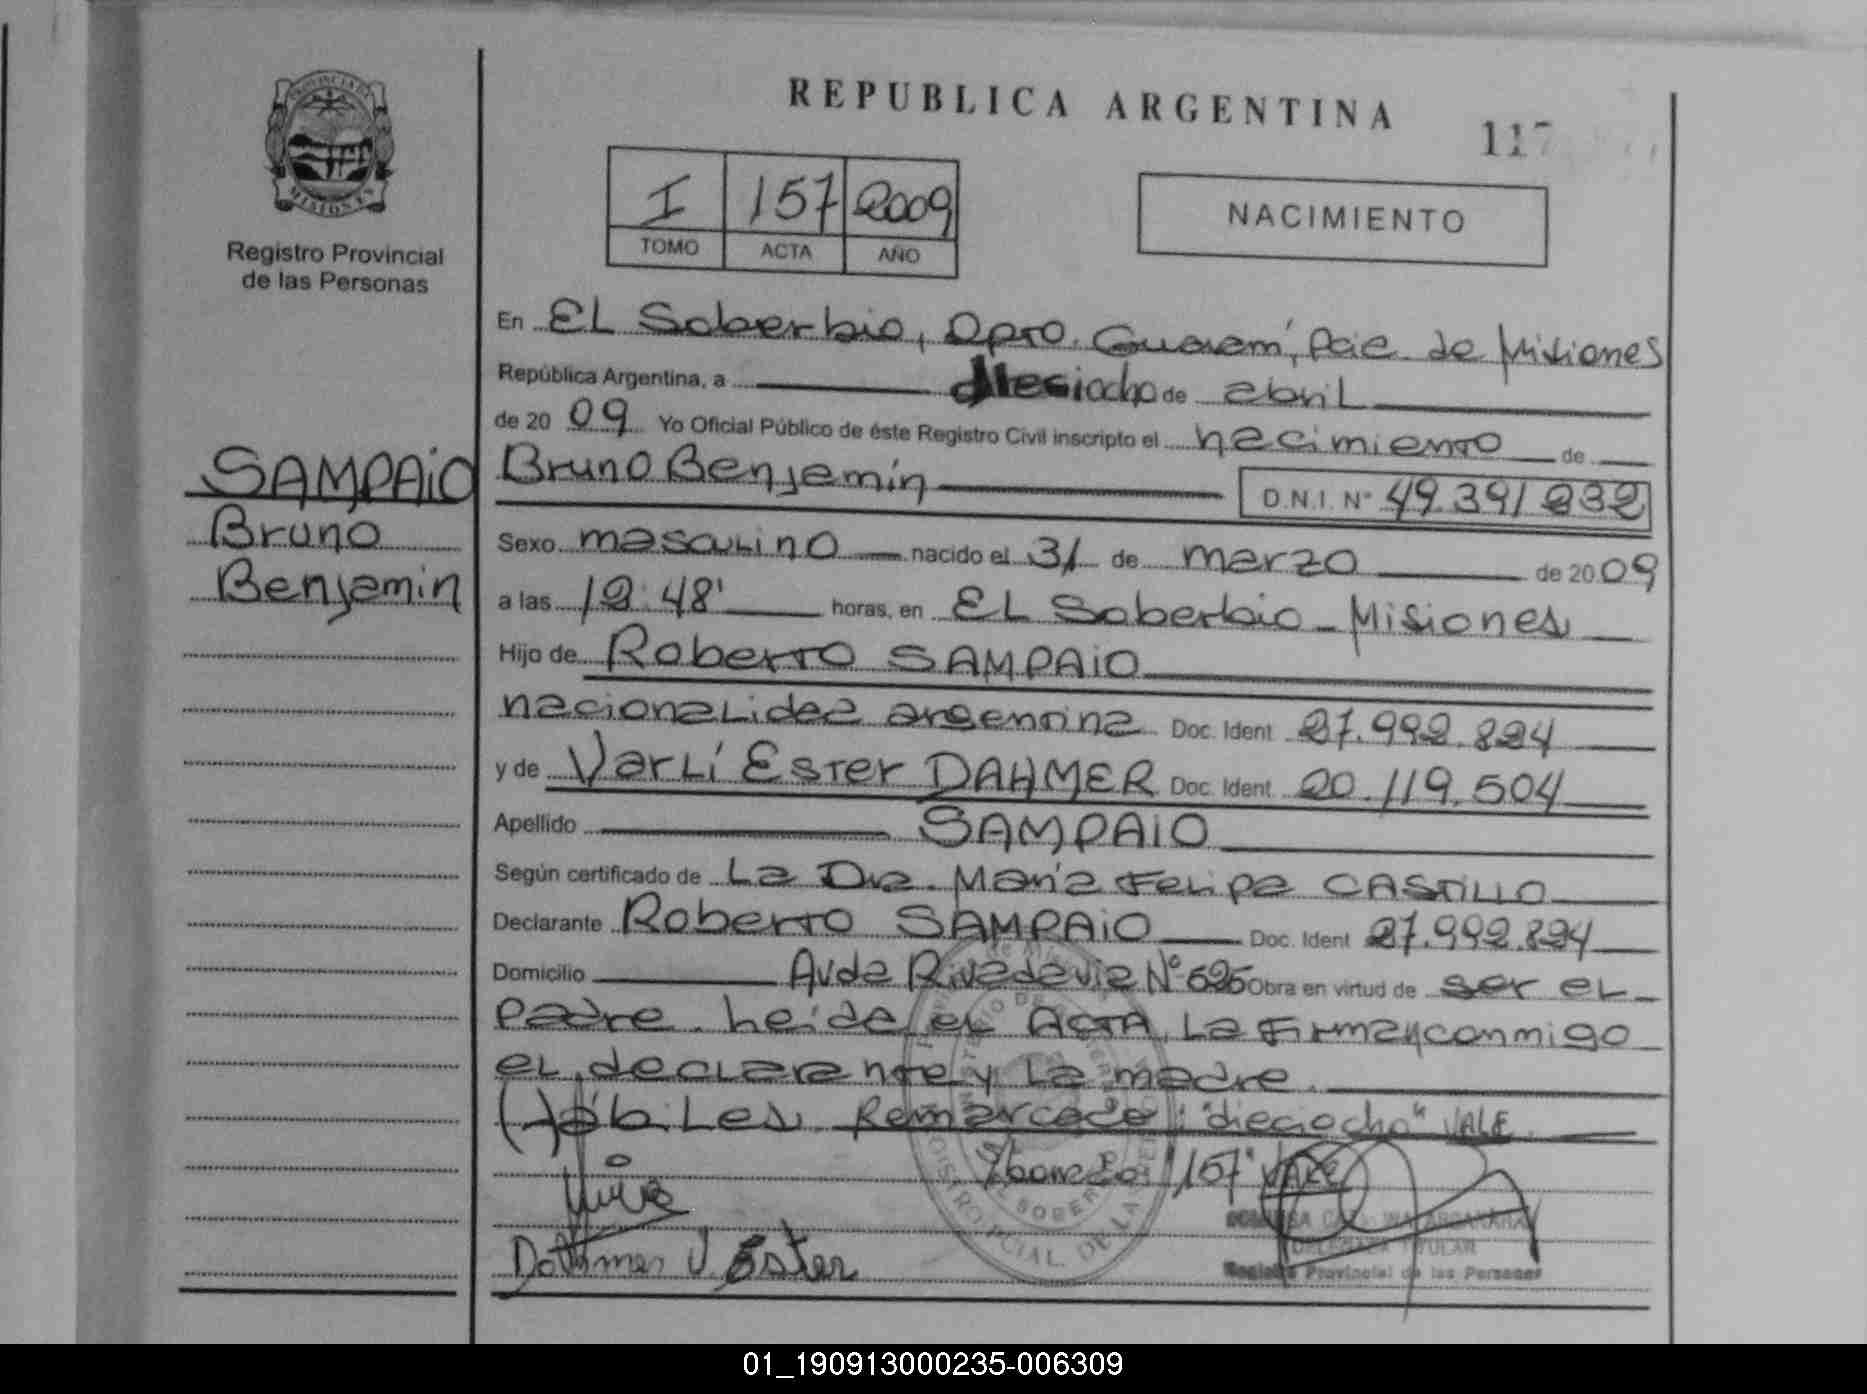 REPUBLICA ARGENTINA
117
I 157 2009
TOMO ACTA AÑO
NACIMIENTO
PROVINCIA DE
MISIONES
Registro Provincial
de las Personas
SAMPAIO
Bruno
Benjamin
En EL Soberbio, Dpto. Guaraní, Pcie. de Misiones
República Argentina, a dieciocho de abril
de 2009 Yo Oficial Público de éste Registro Civil inscripto el nacimiento de
Bruno Benjamín D.N.I. Nº 49.391232
Sexo masculino nacido el 31 de marzo de 2009
a las 12:48' horas, en EL Soberbio - Misiones
Hijo de Roberto SAMPAIO
nacionalidad argentina Doc. Ident 27.992.824
y de Varlí Ester DAHMER Doc. Ident. 20.119.504
Apellido SAMPAIO
Según certificado de La Dra. María Felipa CASTILLO
Declarante Roberto SAMPAIO Doc. Ident 27.992.824
Domicilio Avda Rivadavia Nº 626 Obra en virtud de ser el
padre. Leida el ACTA, La Firman conmigo
el declarante y La madre.
(-) ábiles Remarcado: "dieciocho" VALE
"157" VALE
Dahmer V. Ester
DELEGADA TITULAR
Registro Provincial de las Personas
01_190913000235-006309